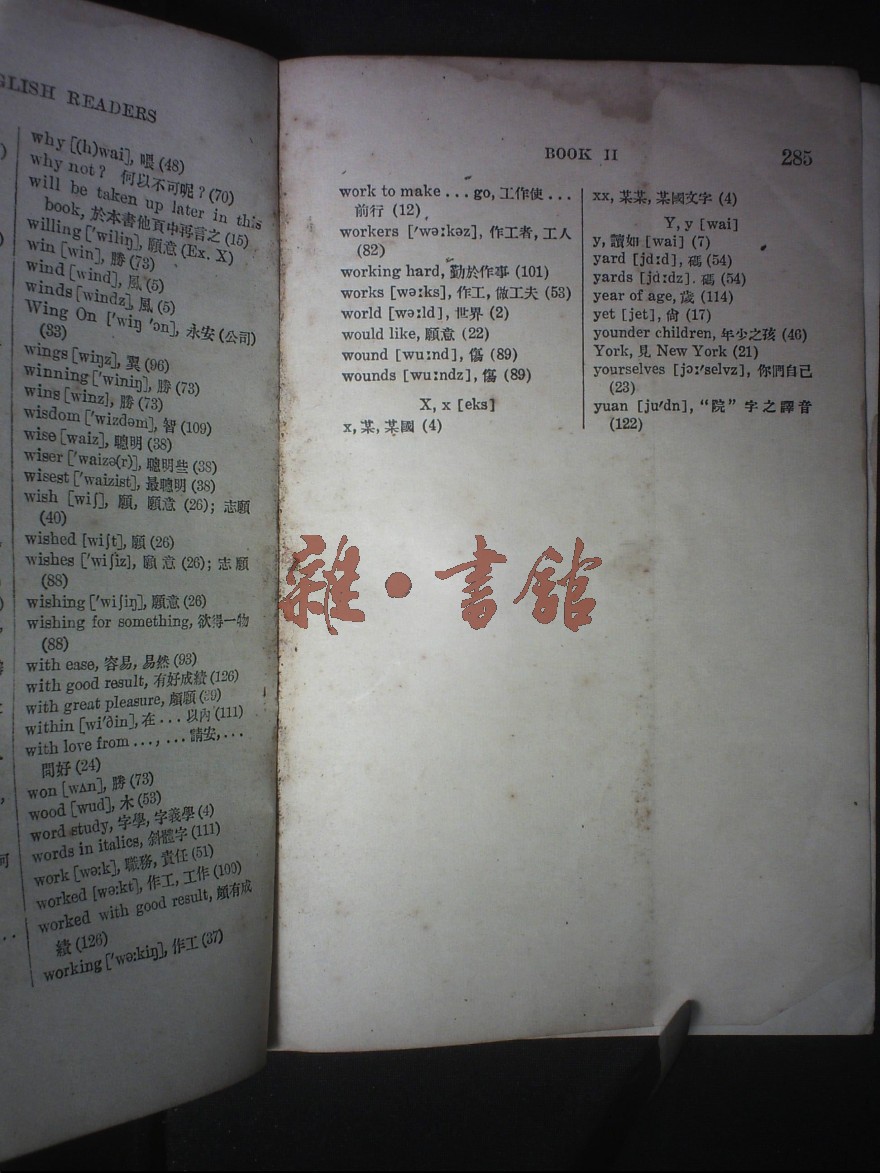 GLISH READERS
why [(h)wai], 喂 (48)
why not? 何以不可呢? (70)
will be taken up later in this
book, 於本書他頁中再言之 (15)
willing ['wiliŋ], 願意 (Ex. X)
win [win], 勝 (73)
wind [wind], 風 (5)
winds [windz], 風 (5)
Wing On ['wiŋ 'ɔn], 永安 (公司)
(33)
wings [wiŋz], 翼 (96)
winning ['winiŋ], 勝 (73)
wins [winz], 勝 (73)
wisdom ['wizdəm], 智 (109)
wise [waiz], 聰明 (38)
wiser ['waizə(r)], 聰明些 (38)
wisest ['waizist], 最聰明 (38)
wish [wiʃ], 願, 願意 (26); 志願
(40)
wished [wiʃt], 願 (26)
wishes ['wiʃiz], 願意 (26); 志願
(88)
wishing ['wiʃiŋ], 願意 (26)
wishing for something, 欲得一物
(88)
with ease, 容易, 易然 (93)
with good result, 有好成績 (126)
with great pleasure, 頗願
within [wi'ðin], 在... 以內 (111)
with love from ..., ... 請安, ...
問好 (24)
won [wʌn], 勝 (73)
wood [wud], 木 (53)
word study, 字學, 字義學 (4)
words in italics, 斜體字 (111)
work [wə:k], 職務, 責任 (51)
worked [wə:kt], 作工, 工作 (100)
worked with good result, 頗有成
績 (126)
working ['wə:kiŋ], 作工 (37)
BOOK II 285
work to make ... go, 工作使 ...
前行 (12)
workers ['wə:kəz], 作工者, 工人
(82)
working hard, 勤於作事 (101)
works [wə:ks], 作工, 做工夫 (53)
world [wə:ld], 世界 (2)
would like, 願意 (22)
wound [wu:nd], 傷 (89)
wounds [wu:ndz], 傷 (89)
X, x [eks]
x, 某, 某國 (4)
xx, 某某, 某國文字 (4)
Y, y [wai]
y, 讀如 [wai] (7)
yard [jɑ:d], 碼 (54)
yards [jɑ:dz], 碼 (54)
year of age, 歲 (114)
yet [jet], 尙 (17)
younder children, 年少之孩 (46)
York, 見 New York (21)
yourselves [jɔ:'selvz], 你們自己
(23)
yuan [ju'ɑn], “院” 字之譯音
(122)
雜·書館